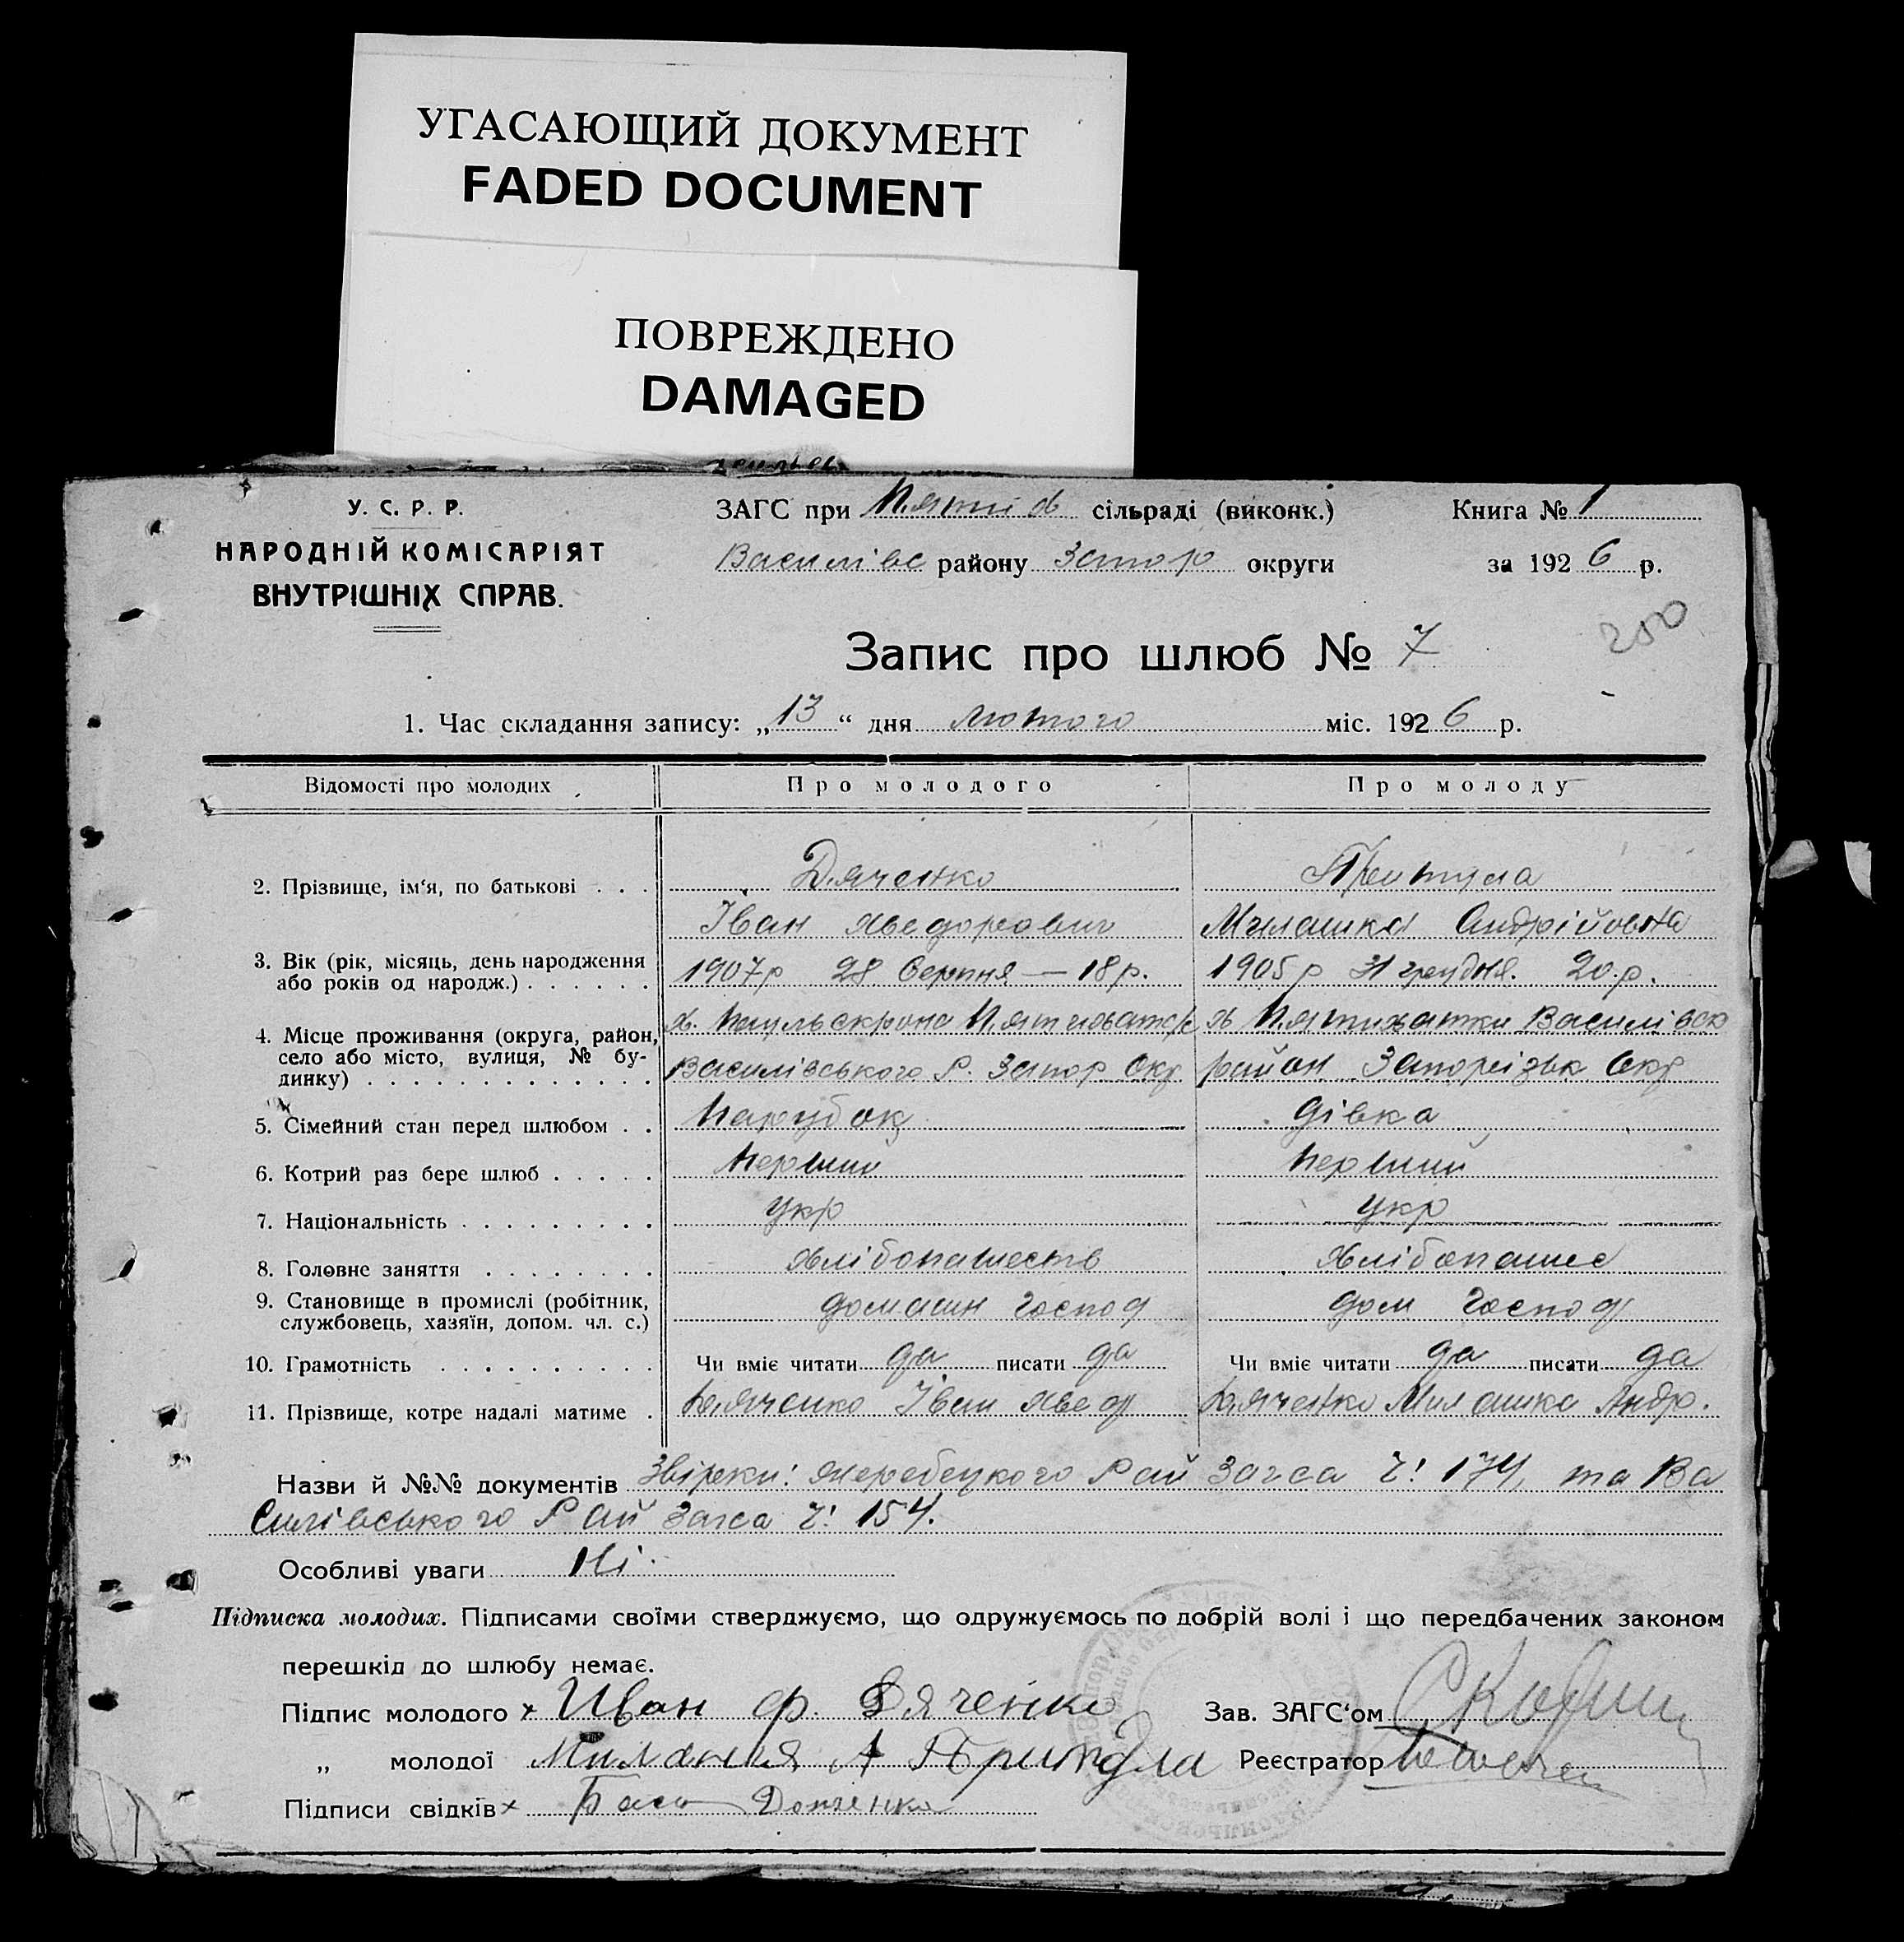 УГАСАЮЩИЙ ДОКУМЕНТ
FADED DOCUMENT
ПОВРЕЖДЕНО
DAMAGED
У. С. Р. Р.
НАРОДНІЙ КОМІСАРІЯТ
ВНУТРІШНІХ СПРАВ.
ЗАГС при П.яти х сільраді (виконк.)
Василівс району Запор округи
Книга № 1
за 1926 р.
200
Запис про шлюб № 7
1. Час складання запису: „13“ дня лютого міс. 1926 р.
Відомості про молодих Про молодого Про молоду
2. Прізвище, ім‘я, по батькові . . . Дяченко Притула
Іван Хведорович Милашка Андрійовна
3. Вік (рік, місяць, день народження або років од народж.) . . . . . . 1907р 28 Серпня — 18 р. 1905 р 31 грудня. 20.р.
4. Місце проживання (округа, район, село або місто, вулиця, № будинку) . . . . . . . . . . . . . х. П.ятихатки Василівск
Василівського Р. Запор Окр район Запорізьк Окр
5. Сімейний стан перед шлюбом . . Парубок дівка
6. Котрий раз бере шлюб . . . . . Перший Перший
7. Національність . . . . . . . . . Укр Укр
8. Головне заняття . . . . . . . . Хлібопашеств Хлібопашес
9. Становище в промислі (робітник, службовець, хазяїн, допом. чл. с.) домашн Господ дом Господ
10. Грамотність . . . . . . . . . . Чи вміє читати да писати да Чи вміє читати да писати да
11. Прізвище, котре надалі матиме . Дяченко Іван Хвед Дяченко Милашка Андр.
Назви й №№ документів Звірки: Жеребецкого Рай Загса Ч! 174, та Ва
силівського Рай Загса Ч! 154.
Особливі уваги Ні.
Підписка молодих. Підписами своїми стверджуємо, що одружуємось по добрій волі і що передбачених законом
перешкід до шлюбу немає.
Підпис молодого х Иван Ф. Дяченко Зав. ЗАГС‘ом
„ молодої Милания А Притула Реєстратор
Підписи свідків х